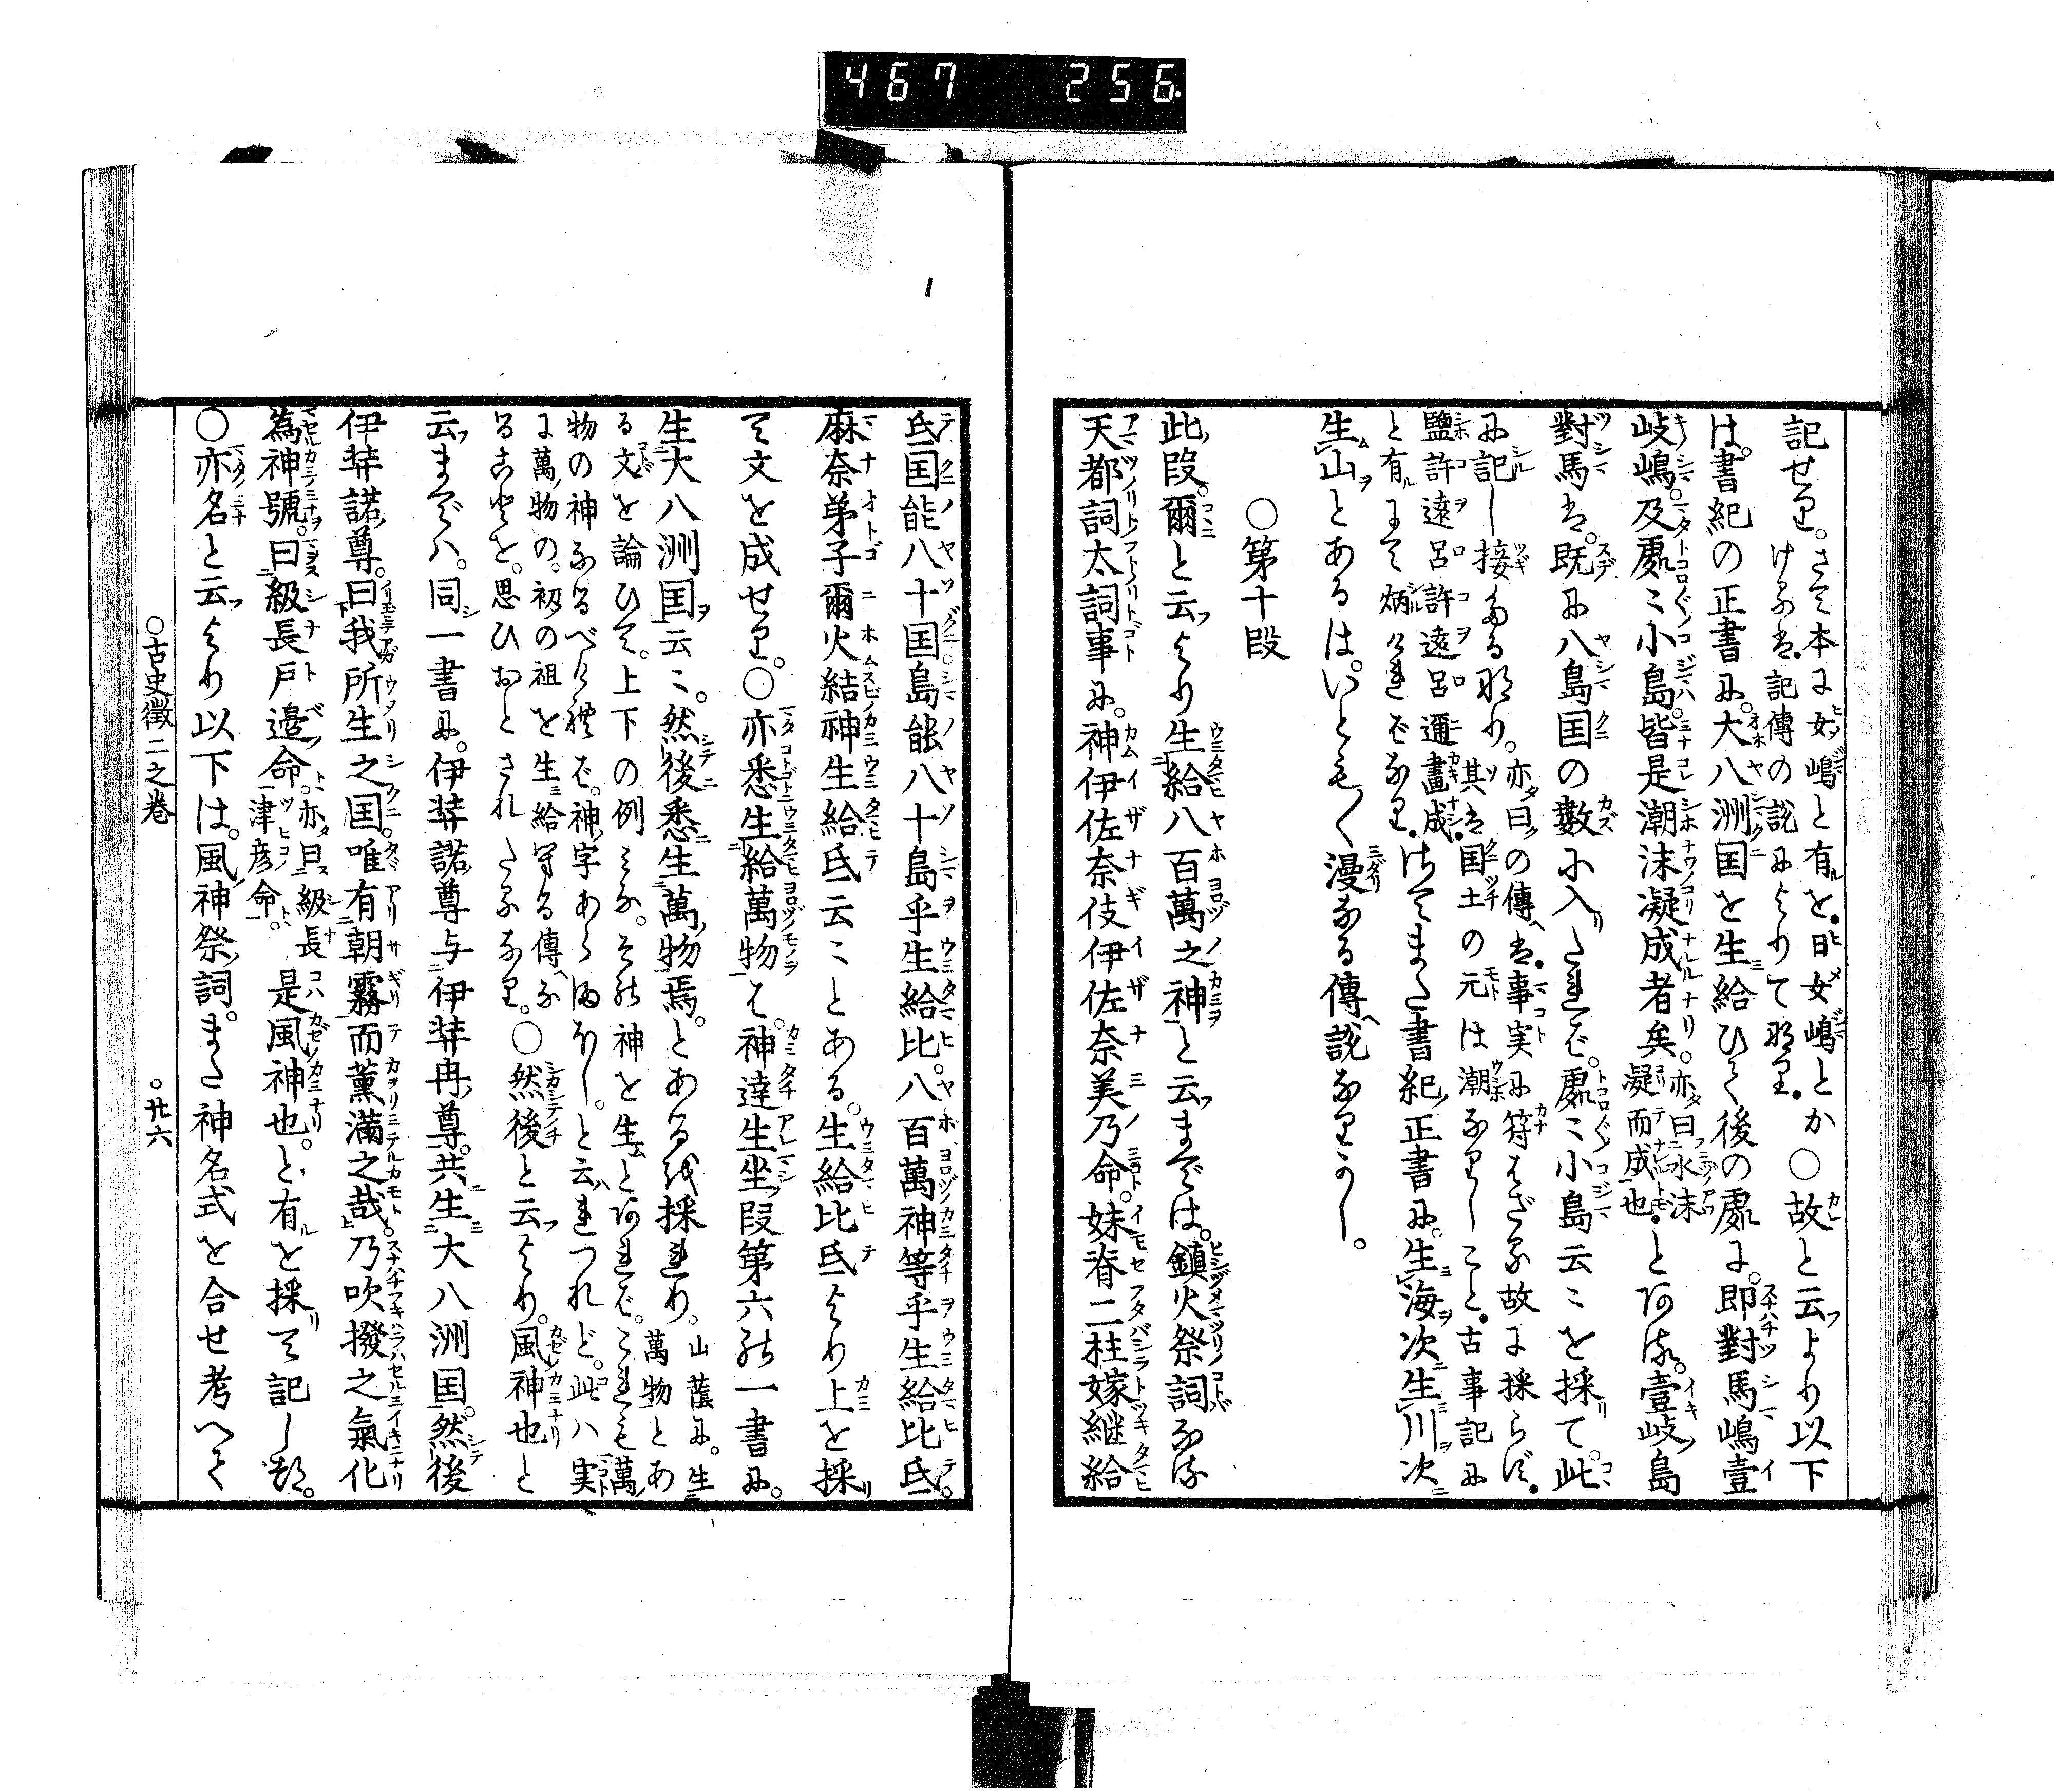 467 256.
記せり。さて本に女嶋と有を。日女嶋とか
けるは。記傳の説によりて那り。
〇故と云より以下
は。書紀の正書に。大八洲国を生給ひて後の處に。即對馬嶋壹
岐嶋。及處〻小島。皆是潮沫凝成者矣。亦曰水沫
凝而成也。
とある。壹岐島
對馬は。既に八島国の數に入たれば。處〻小島云〻を採て。此
に記し接たる那り。亦曰の傳は。事実に符はざる故に採らず。
其は国土の元は潮なりしこと。古事記に
鹽許遠呂許遠呂邇畫成。
と有にて炳ければなり。
さてまた書紀正書に。生海次生川次
生山とあるは。いとも〱漫なる傳説なりかし。
〇第十段
此段。爾と云より生給八百萬之神と云までは。鎮火祭詞なる
天都詞太詞事に。神伊佐奈伎伊佐奈美乃命。妹脊二柱嫁継給
氐国能八十国島能八十島乎生給比。八百萬神等乎生給比氐。
麻奈弟子爾火結神生給氐云〻とある。生給比氐より上を採
て文を成せり。〇亦悉生給萬物は。神達生坐段第六の一書に。
生大八洲国云〻。然後悉生萬物焉。とあるを採れり。山蔭に。生
萬物とあ
る文を論ひて。上下の例みな。その神を生とあれば。これも萬
物の神なるべければ。神字あらまほし。と云れつれど。此ハ実
に萬物の。初の祖を生給へる傳な
ることを。思ひおとされたるなり。
〇然後と云より。風神也と
云までハ。同一書に。伊弉諾尊与伊弉冉尊。共生大八洲国。然後
伊弉諾尊。曰我所生之国。唯有朝霧而薫満之哉。乃吹撥之氣化
為神號。曰級長戸邉命。亦曰級長
津彦命。
是風神也。と有を採て記しつ。
〇亦名と云より以下は。風神祭詞。また神名式を合せ考へて
〇古史徴二之巻
〇廿六